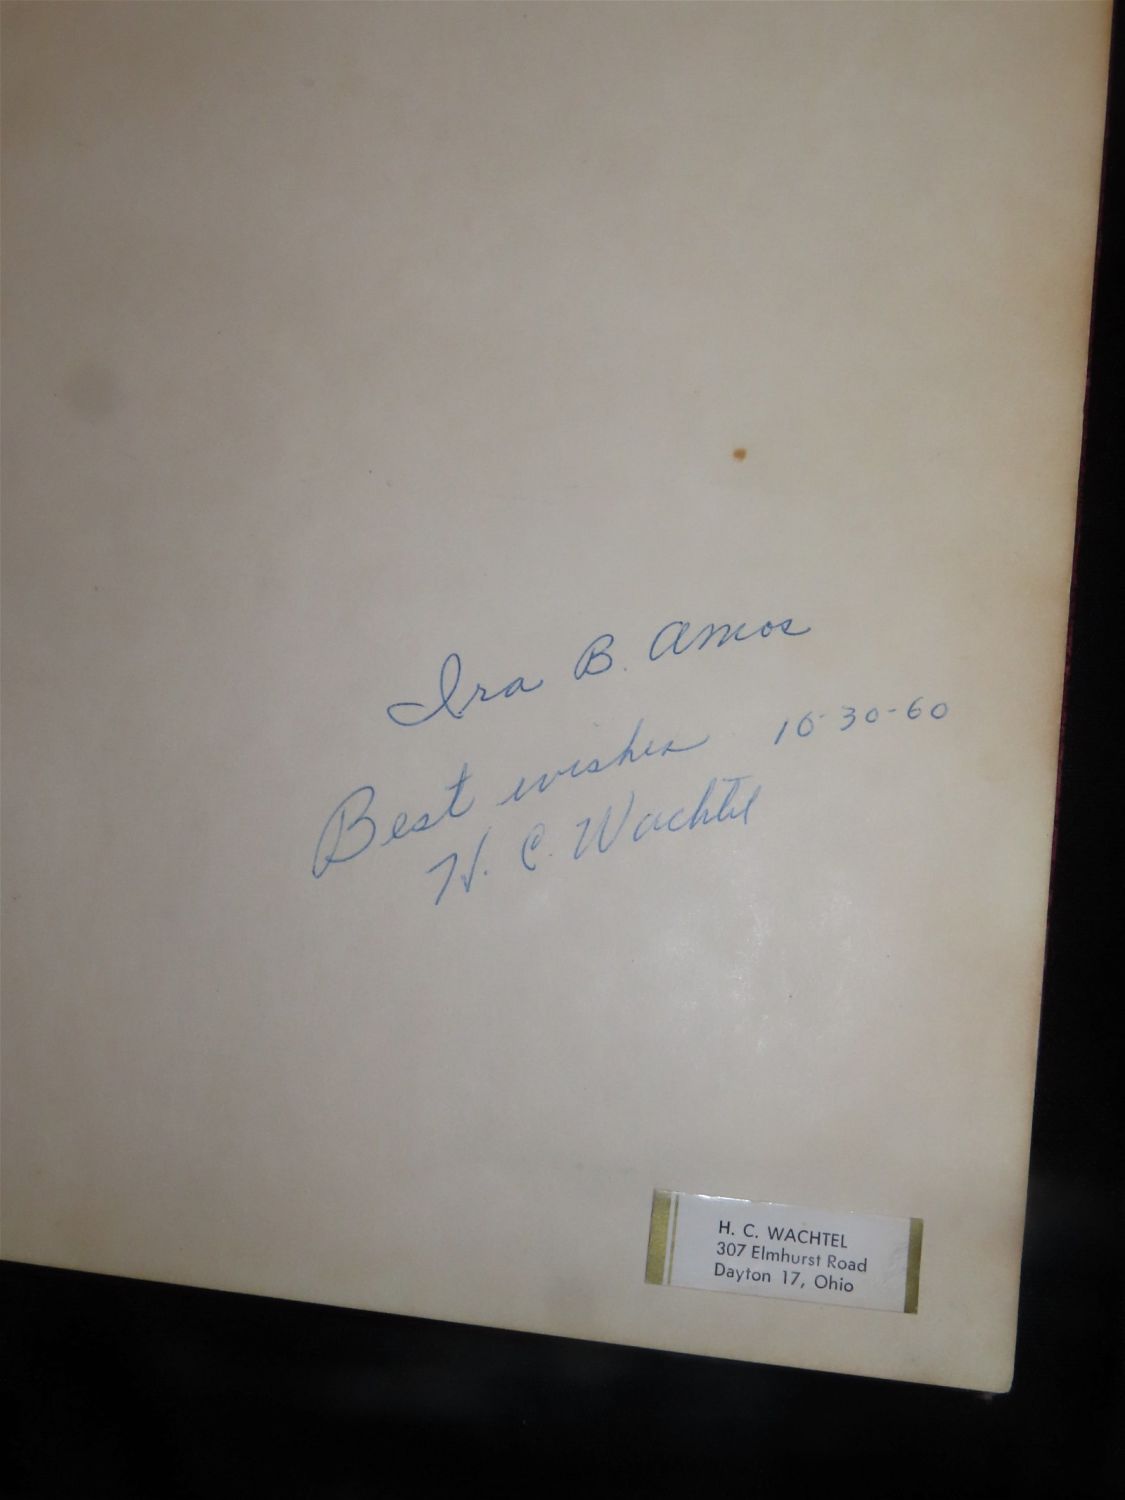 Ira B. Amos
Best wishes 10-30-60
H. C. Wachtel
H. C. WACHTEL
307 Elmhurst Road
Dayton 17, Ohio